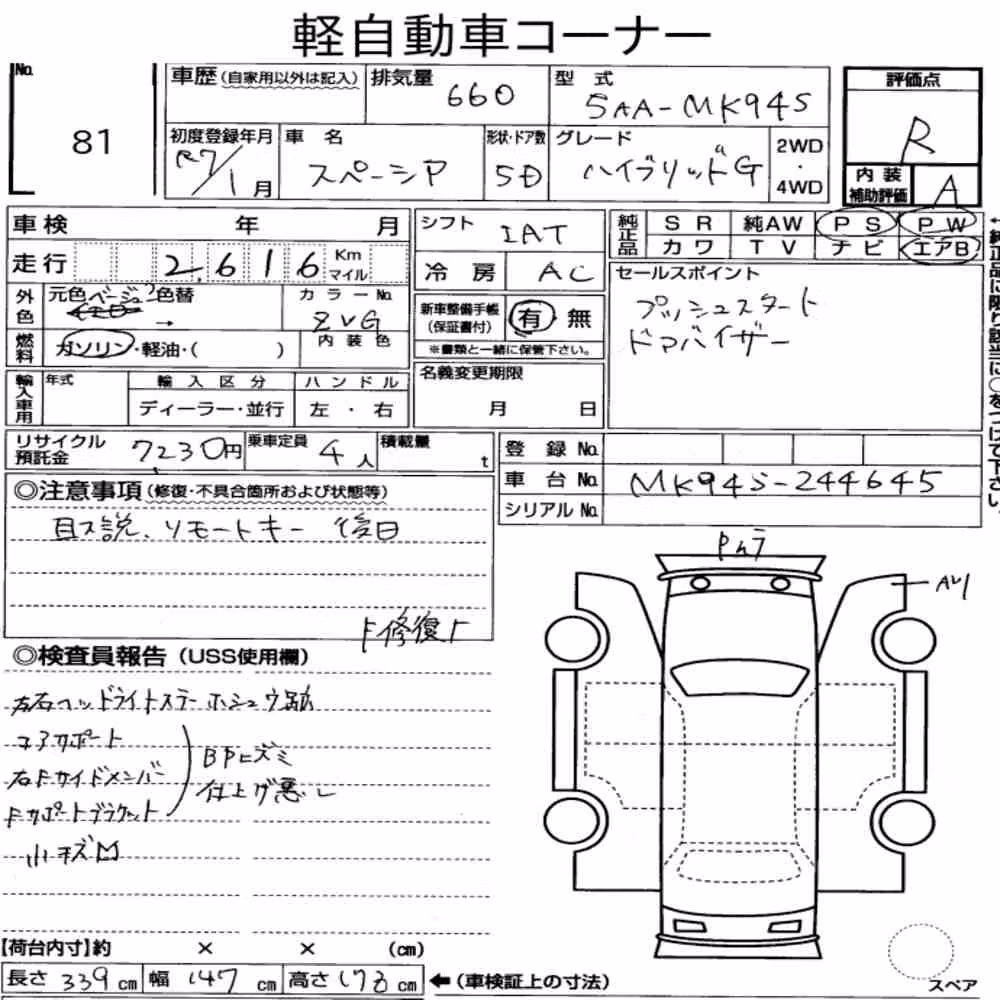 軽自動車コーナー
No. 81
車歴(自家用以外は記入)
排気量 660
型式 5AA-MK94S
評価点 R
初度登録年月 R7/1月
車名 スペーシア
形状・ドア数 5D
グレード ハイブリッドG
2WD・4WD
内装補助評価 A
車検 年 月
シフト IAT
純正品 SR 純AW PS PW
カワ TV ナビ エアB
走行 2,616 Km マイル
冷房 AC
セールスポイント
プッシュスタート
ドアバイザー
外色 元色 ベージュ2 色替 →
カラーNo. ZVG
新車整備手帳(保証書付) 有 無
※書類と一緒に保管下さい。
燃料 ガソリン・軽油・( )
内装色
輸入車用 年式 輸入区分 ハンドル
ディーラー・並行 左・右
名義変更期限
月 日
←純正品に限り該当に○をつけて下さい。
リサイクル預託金 7230円
乗車定員 4人
積載量 t
登録No.
車台No. MK94S-244645
シリアルNo.
◎注意事項(修復・不具合箇所および状態等)
取説、リモートキー 後日
F修復
◎検査員報告(USS使用欄)
左右ヘッドライトステーホシュウ跡
コアサポート
右Fサイドメンバー
Fサポートブラケット
BPヒズミ
仕上げ悪し
小キズ凹
Pムラ
スペア
【荷台内寸】約 × × (cm)
長さ 339 cm 幅 147 cm 高さ 178 cm ←(車検証上の寸法)